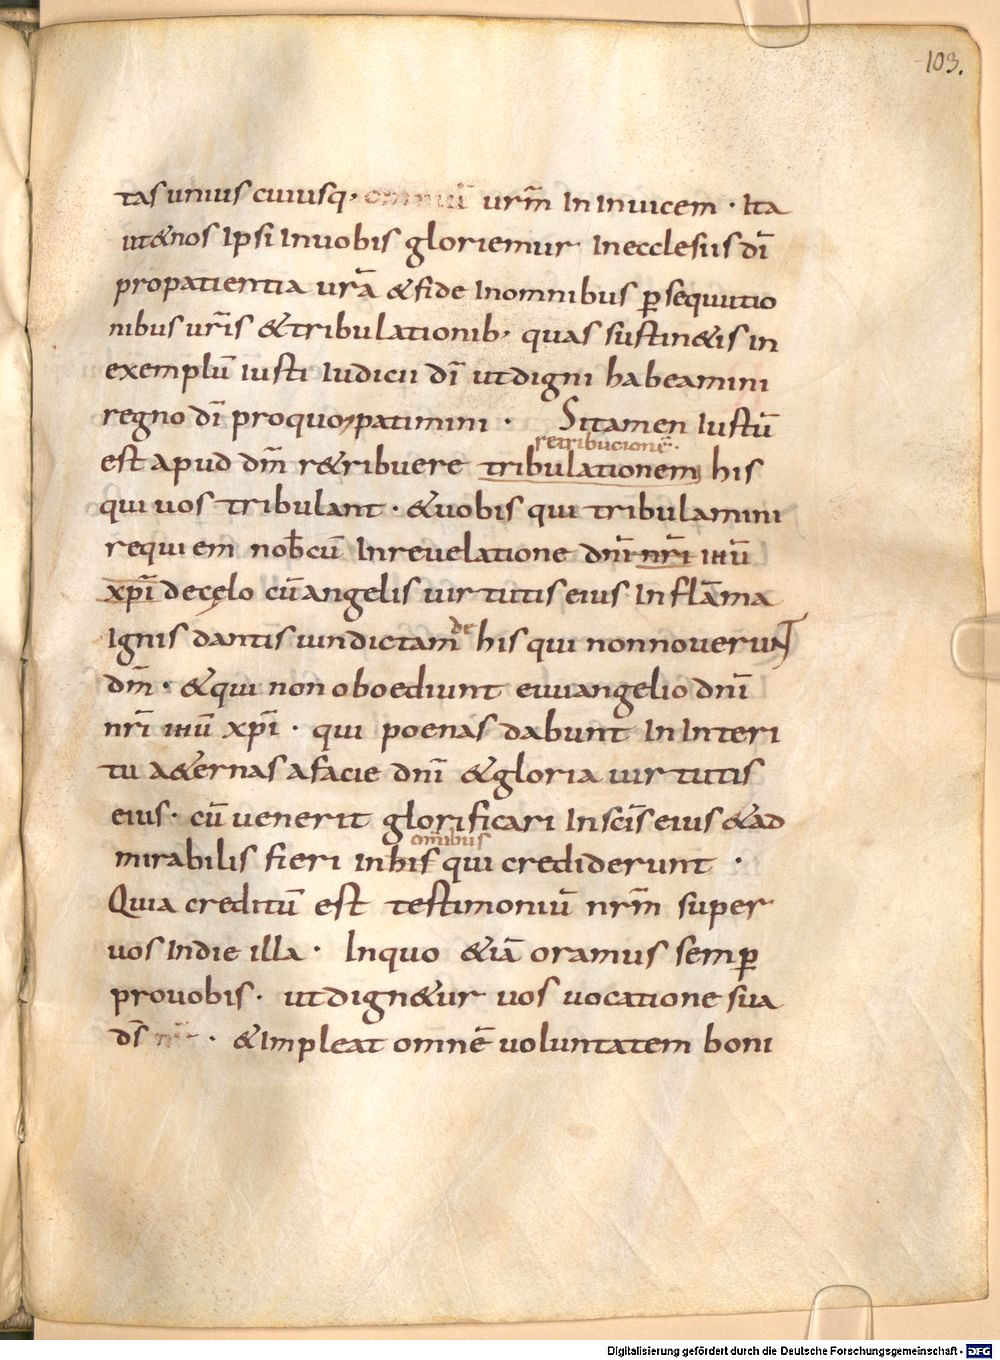 103.
tas unius cuiusq; omniū urm̄ In Inuicem · Ita
ut&nos Ipsi Inuobis gloriemur Inecclesiis dī
propatientia urā &fide Inomnibus p̄sequutio
nibus uris̄ &tribulationib; quas sustin&is in
exemplū iusti Iudicii dī utdigni habeamini
regno dī proquo patimini · Sitamen Iustū
retribucionē·
est apud dm̄ r&ribuere tribulationem his
qui uos tribulant · &uobis qui tribulamini
requiem nob̄cū Inreuelatione dnī nrī iħū
xp̄ī decęlo cū angelis uirtutis eius In flāma
de
Ignis dantis uindictam his qui nonnouerunt
dm̄ · &qui non oboediunt euuangelio dnī
nrī iħū xp̄ī · qui poenas dabunt In Interi
tu a&ernas afacie dnī &gloria uirtutis
eius · cū uenerit glorificari Insc̄is eius &ad
om̄ibus
mirabilis fieri inhis qui crediderunt ·
Quia creditū est testimoniū nrm̄ super
uos Indie illa · Inquo &iā oramus semp̄
prouobis · utdign&ur uos uocatione sua
ds̄ · &Impleat omnē uoluntatem boni
Digitalisierung gefördert durch die Deutsche Forschungsgemeinschaft · DFG